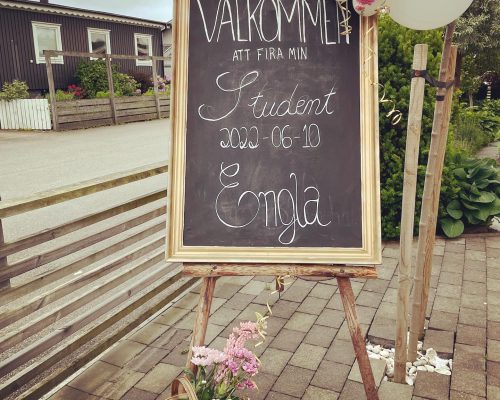 VÄLKOMMEN
ATT FIRA MIN
Student
2022-06-10
Engla